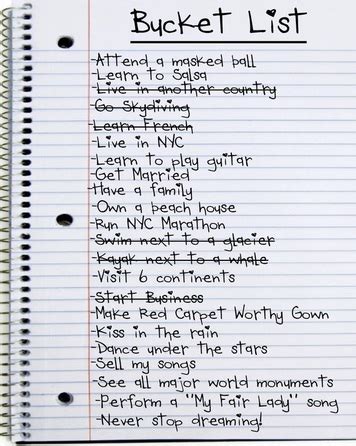 Bucket List
-Attend a masked ball
-Learn to Salsa
-Live in another country
-Go Skydiving
-Learn French
-Live in NYC
-Learn to play guitar
-Get Married
-Have a family
-Own a beach house
-Run NYC Marathon
-Swim next to a glacier
-Kayak next to a whale
-Visit 6 continents
-Start Business
-Make Red Carpet Worthy Gown
-Kiss in the rain
-Dance under the stars
-Sell my songs
-See all major world monuments
-Perform a "My Fair Lady" song
-Never stop dreaming!